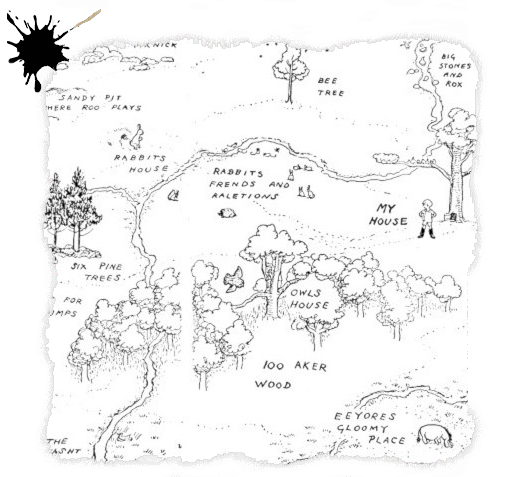 NICK
BIG
STONES
AND
ROX
BEE
TREE
SANDY PIT
HERE ROO PLAYS
RABBITS
HOUSE
RABBITS
FRENDS AND
RALETIONS
MY
HOUSE
SIX PINE
TREES
FOR
UMPS
OWLS
HOUSE
100 AKER
WOOD
EEYORES
GLOOMY
PLACE
THE
ASNT